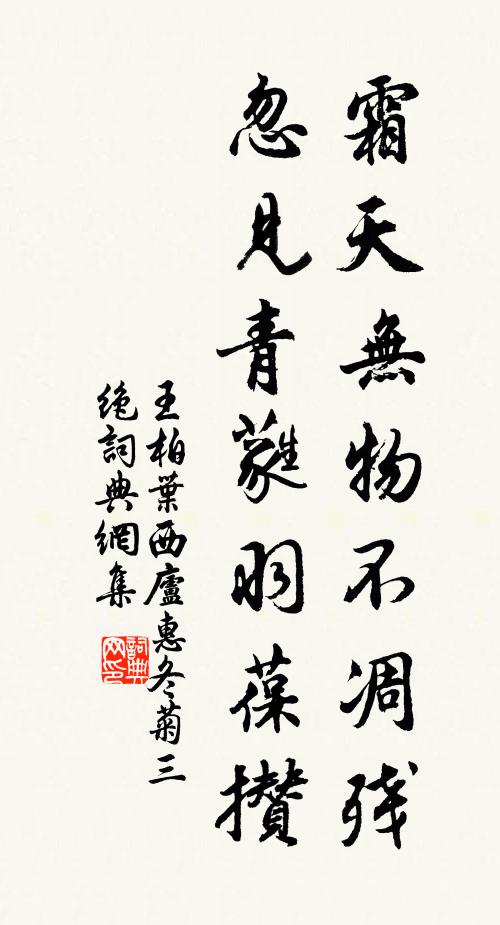 霜天無物不凋残
忽見青蕤羽葆攢
王柏葉西廬惠冬菊三
絶詞典網集
詞典網印